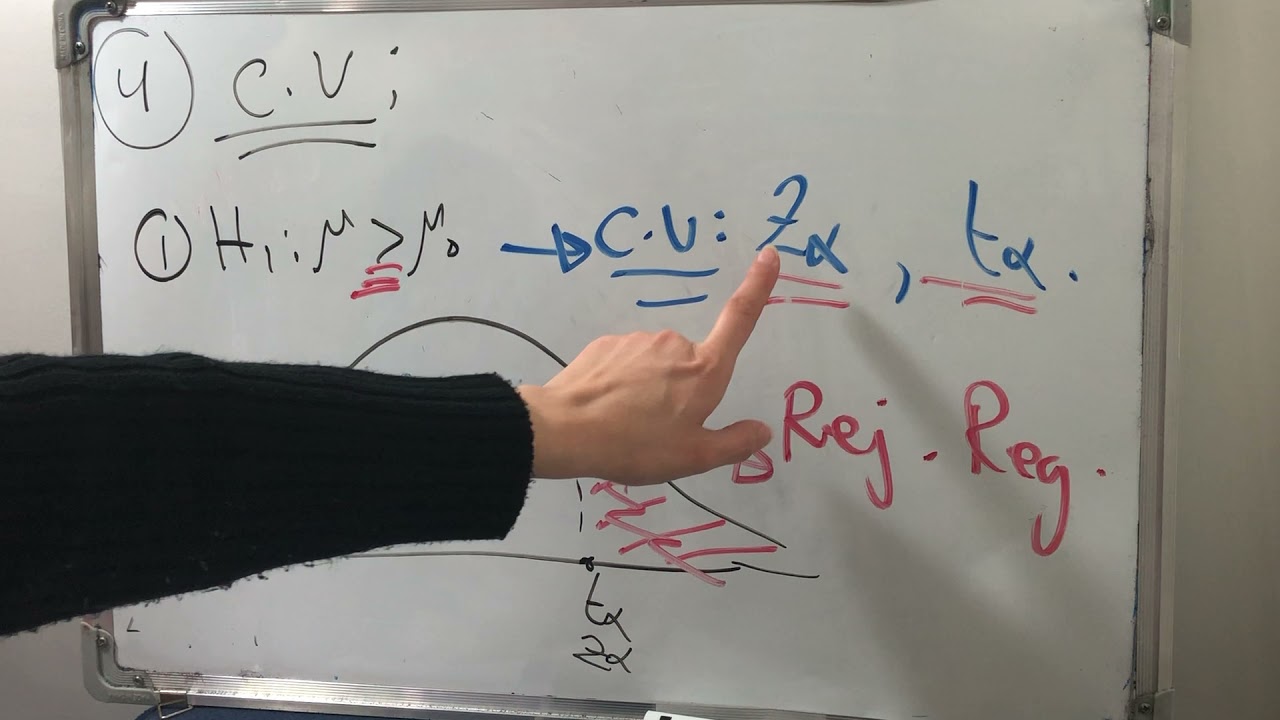 ④ C.V;
① H₁: μ > μ₀ → C.V: Zα, tα.
Rej. Reg.
tα
Zα